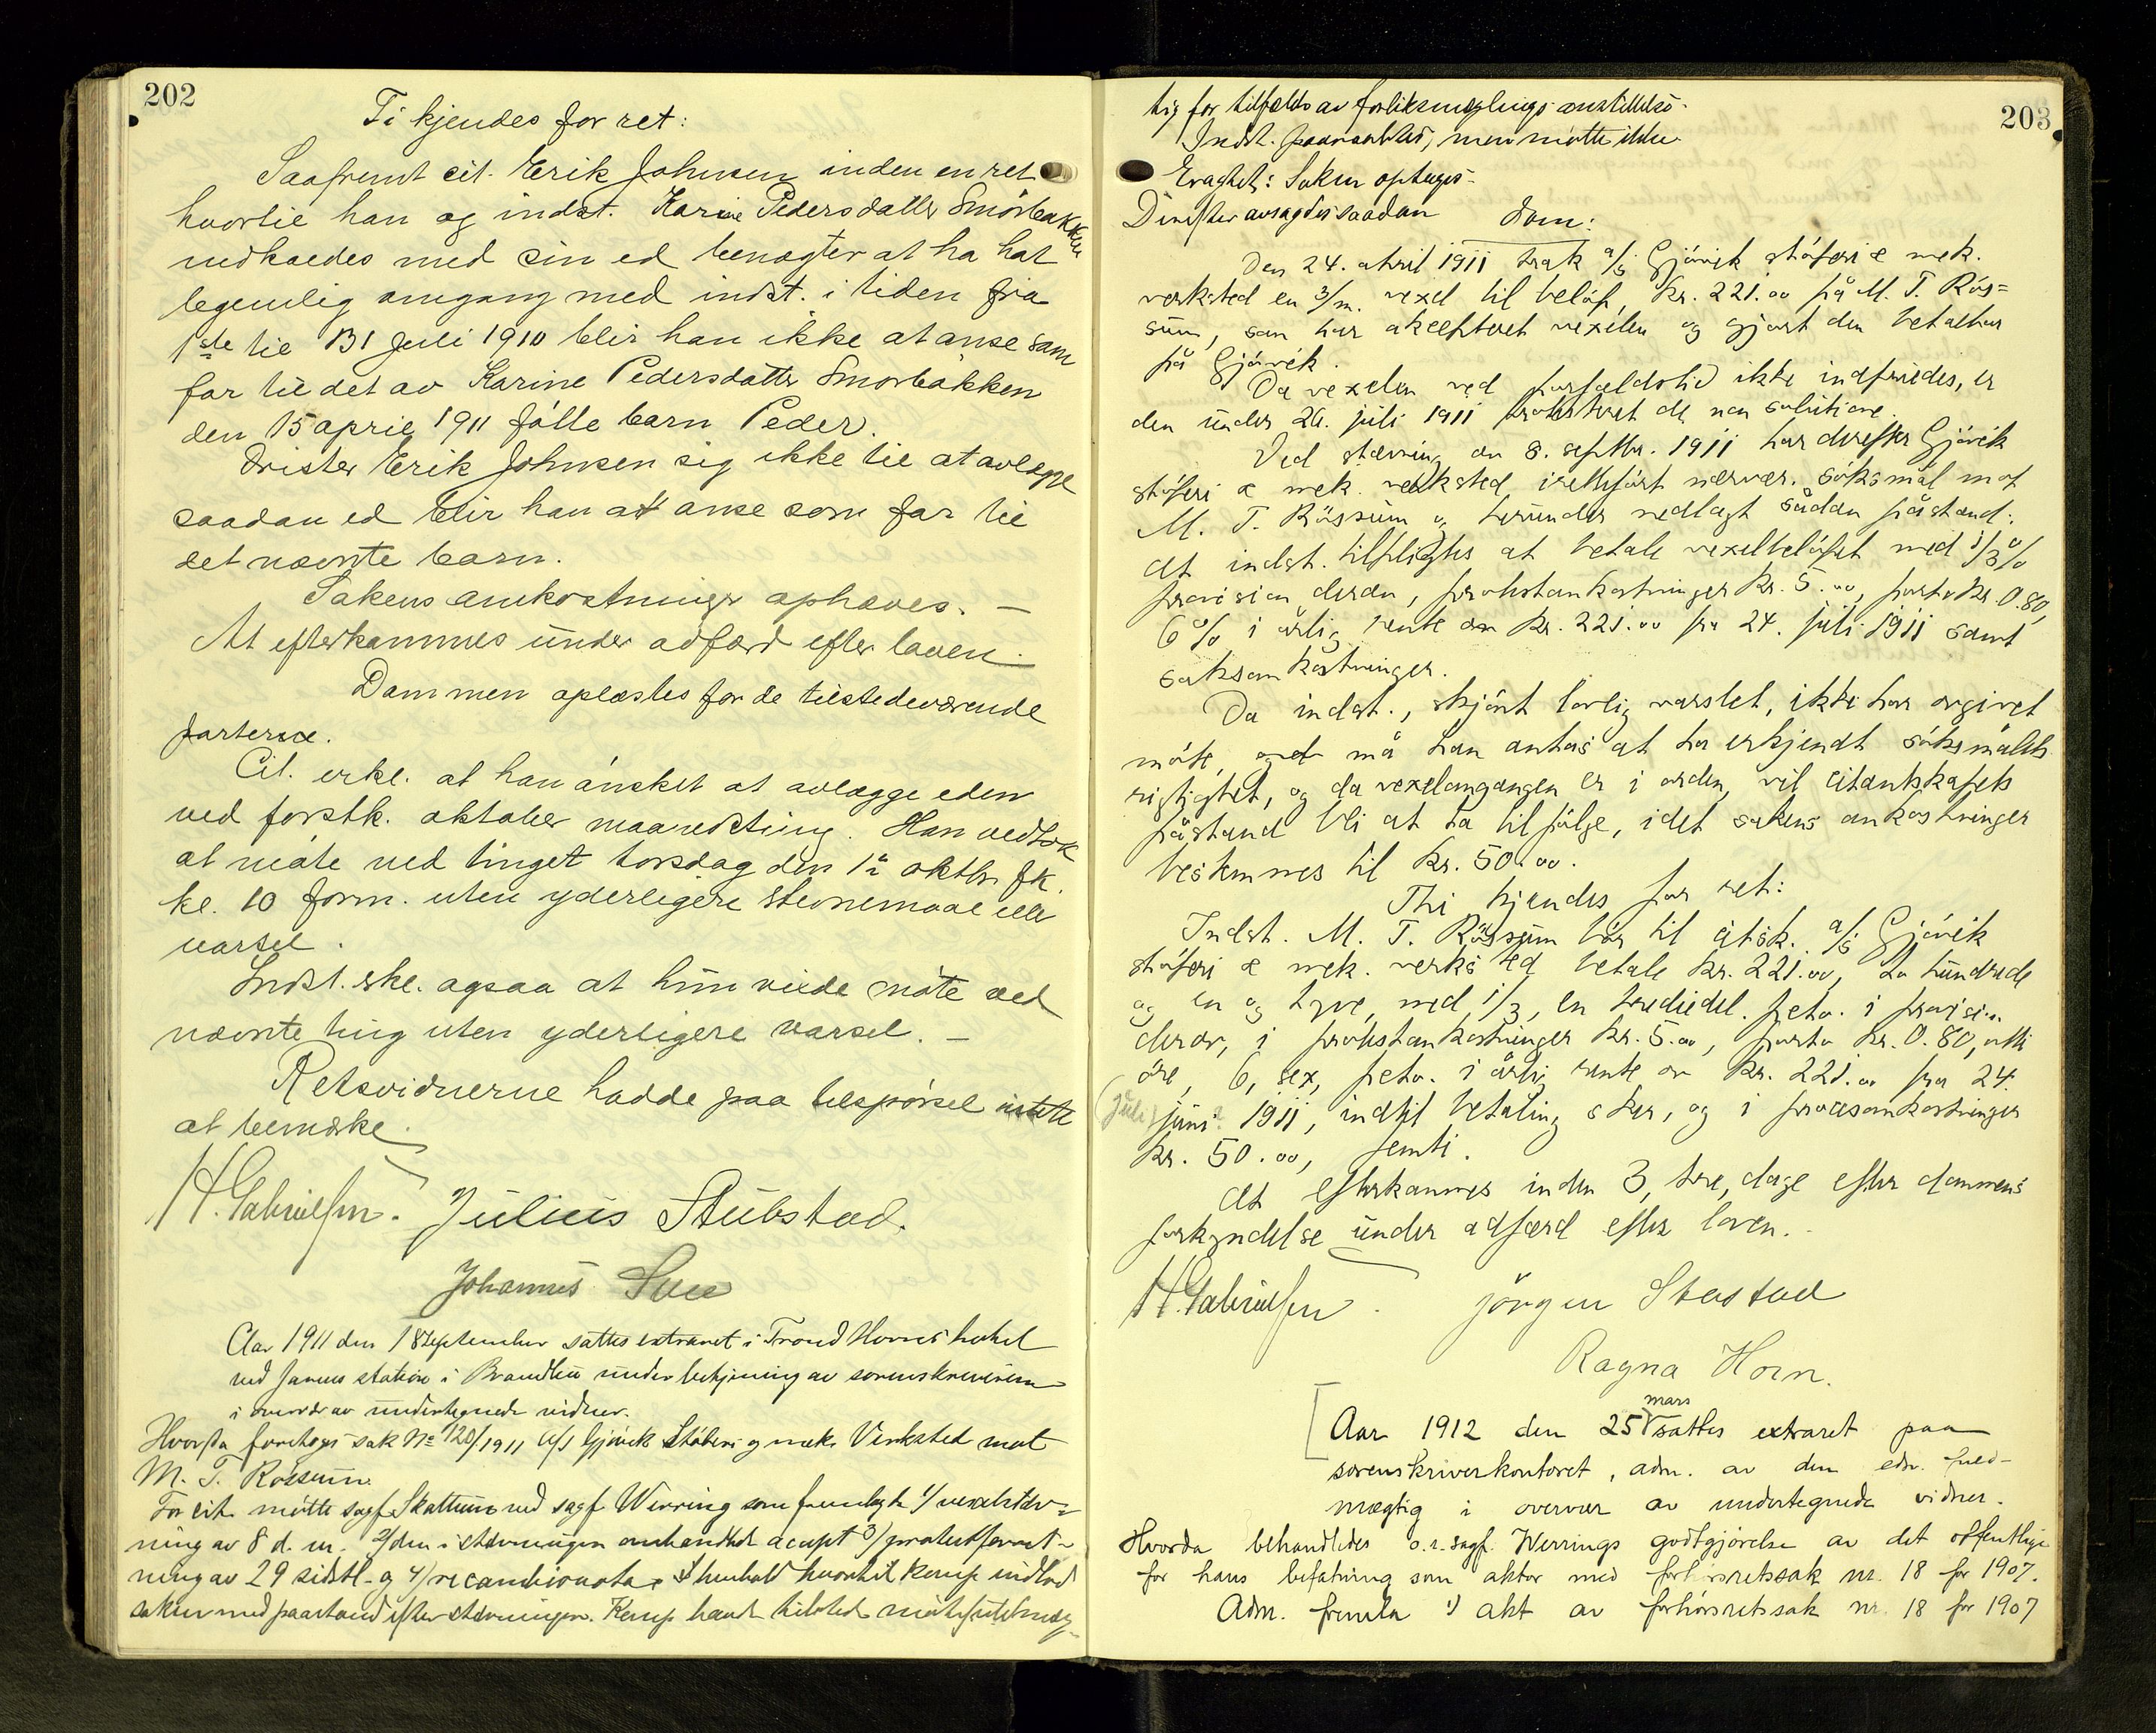 202
Ti kjendes for ret:
Saafremt cit. Erik Johnsen inden en ret
hvortil han og indst. Karine Pedersdatter Smörbakken
indkaldes med sin ed benegter at ha hat
legemlig omgang med indst. i tiden fra
1ste til 31 Juli 1910 blir han ikke at anse som
far til det av Karine Pedersdatter Smörbakken
den 15 april 1911 födte barn Peder.
Drister Erik Johnsen sig ikke til at avlægge
saadan ed blir han at anse som far til
det nævnte barn.
Sakens omkostninger ophæves. —
At efterkommes under adfærd efter loven.
Dommen oplæstes for de tilstedeværende
parterne.
Cit. erkl. at han önsket at avlægge eden
ved förstk. oktober maanedsting. Han vedtok
at möte ved tinget torsdag den oktbr. fk.
kl. 10 form. uten yderligere stevnemaal eller
varsel.
Indst. erkl. ogsaa at hun vilde möte ved
nævnte ting uten yderligere varsel. —
Retsvidnerne hadde paa tilspörsel intet
at bemerke.
H. Gabrielsen. Julius Stubstad.
Johannes
Aar 1911 den 18 september sattes extraret i Trond Horns hotel
ved Jarens station i Brandbu under betjening av sorenskriveren
i overvær av undertegnede vidner.
Hvorda foretoges sak No 120/1911 A/S Gjövik Stöberi og mek. Verksted mot
M. T. Røssum.
For cit. mötte sagf. Skattum ved sagf. Werring som fremlagde 1/ vexelstev-
ning av 8 d. m. 2/ den i stevningen omhandlede accept 3/ protestforret-
ning av 29 sidstl. og 4/ recambionota, i henhold hvortil Komp. indlod
saken med paastand efter stevningen. Komp. havde tilstede mötefuldmæg-
203
tig for tilfælde av forliksmeglings anstillelse.
Indst. paaraabtes, men mötte ikke.
Eragtet: Saken optages.
Derefter avsagdes saadan dom:
Den 24. april 1911 trak a/s Gjövik stöferi & mek.
verksted en 3/m. vexel til belöp kr. 221.00 på M. T. Rös=
sum, som har akceptert vexelen og gjort den betalbar
på Gjövik.
Da vexelen ved forfaldstid ikke indfriedes, er
den under 26. juli 1911 protesteret de non solutione.
Ved stevning av 8. septbr. 1911 har derefter Gjövik
stöferi & mek. verksted iretteført nærvær. söksmål mot
M. T. Rössum og herunder nedlagt sådan påstand:
at indst. tilpligtes at betale vexelbelöpet med 1/3%
provision derav, protestomkostninger kr. 5.00, porto kr. 0.80,
6% i årlig rente av kr. 221.00 fra 24. juli 1911 samt
saksomkostninger.
Da indst., skjönt lovlig varslet, ikke har avgivet
möte, må han antas at ha erkjendt söksmålets
rigtighet, og da vexelomgangen er i orden, vil citantskapets
påstand bli at ta tilfölge, idet sakens omkostninger
bestemmes til kr. 50.00.
Thi kjendes for ret:
Indst. M. T. Rössum bör til citsk. a/s Gjövik
stöferi & mek. verksted betale kr. 221.00, to hundrede
og en og tyve, med 1/3, en trediedel. pcto. i provision
derav, i protestomkostninger kr. 5.00, porto kr. 0.80, otti
öre, 6, sex, pcto. i årlig rente av kr. 221.00 fra 24.
(juli) juni 1911, indtil betaling sker, og i procesomkostninger
kr. 50.00, femti.
At efterkommes inden 3, tre, dage efter dommens
forkyndelse under adfærd efter loven.
H. Gabrielsen. Jörgen Stastad
Ragna Horn.
mars
Aar 1912 den 25 sattes extraret paa
sorenskriverkontoret, adm. av den edsv. fuld-
mægtig i overvær av undertegnede vidner.
Hvorda behandledes o.r.sagf. Werrings godtgjörelse av det offentlige
for hans befatning som aktor med forhörsretssak nr. 18 for 1907.
Adm. fremla 1) akt av forhörsretssak nr. 18 for 1907